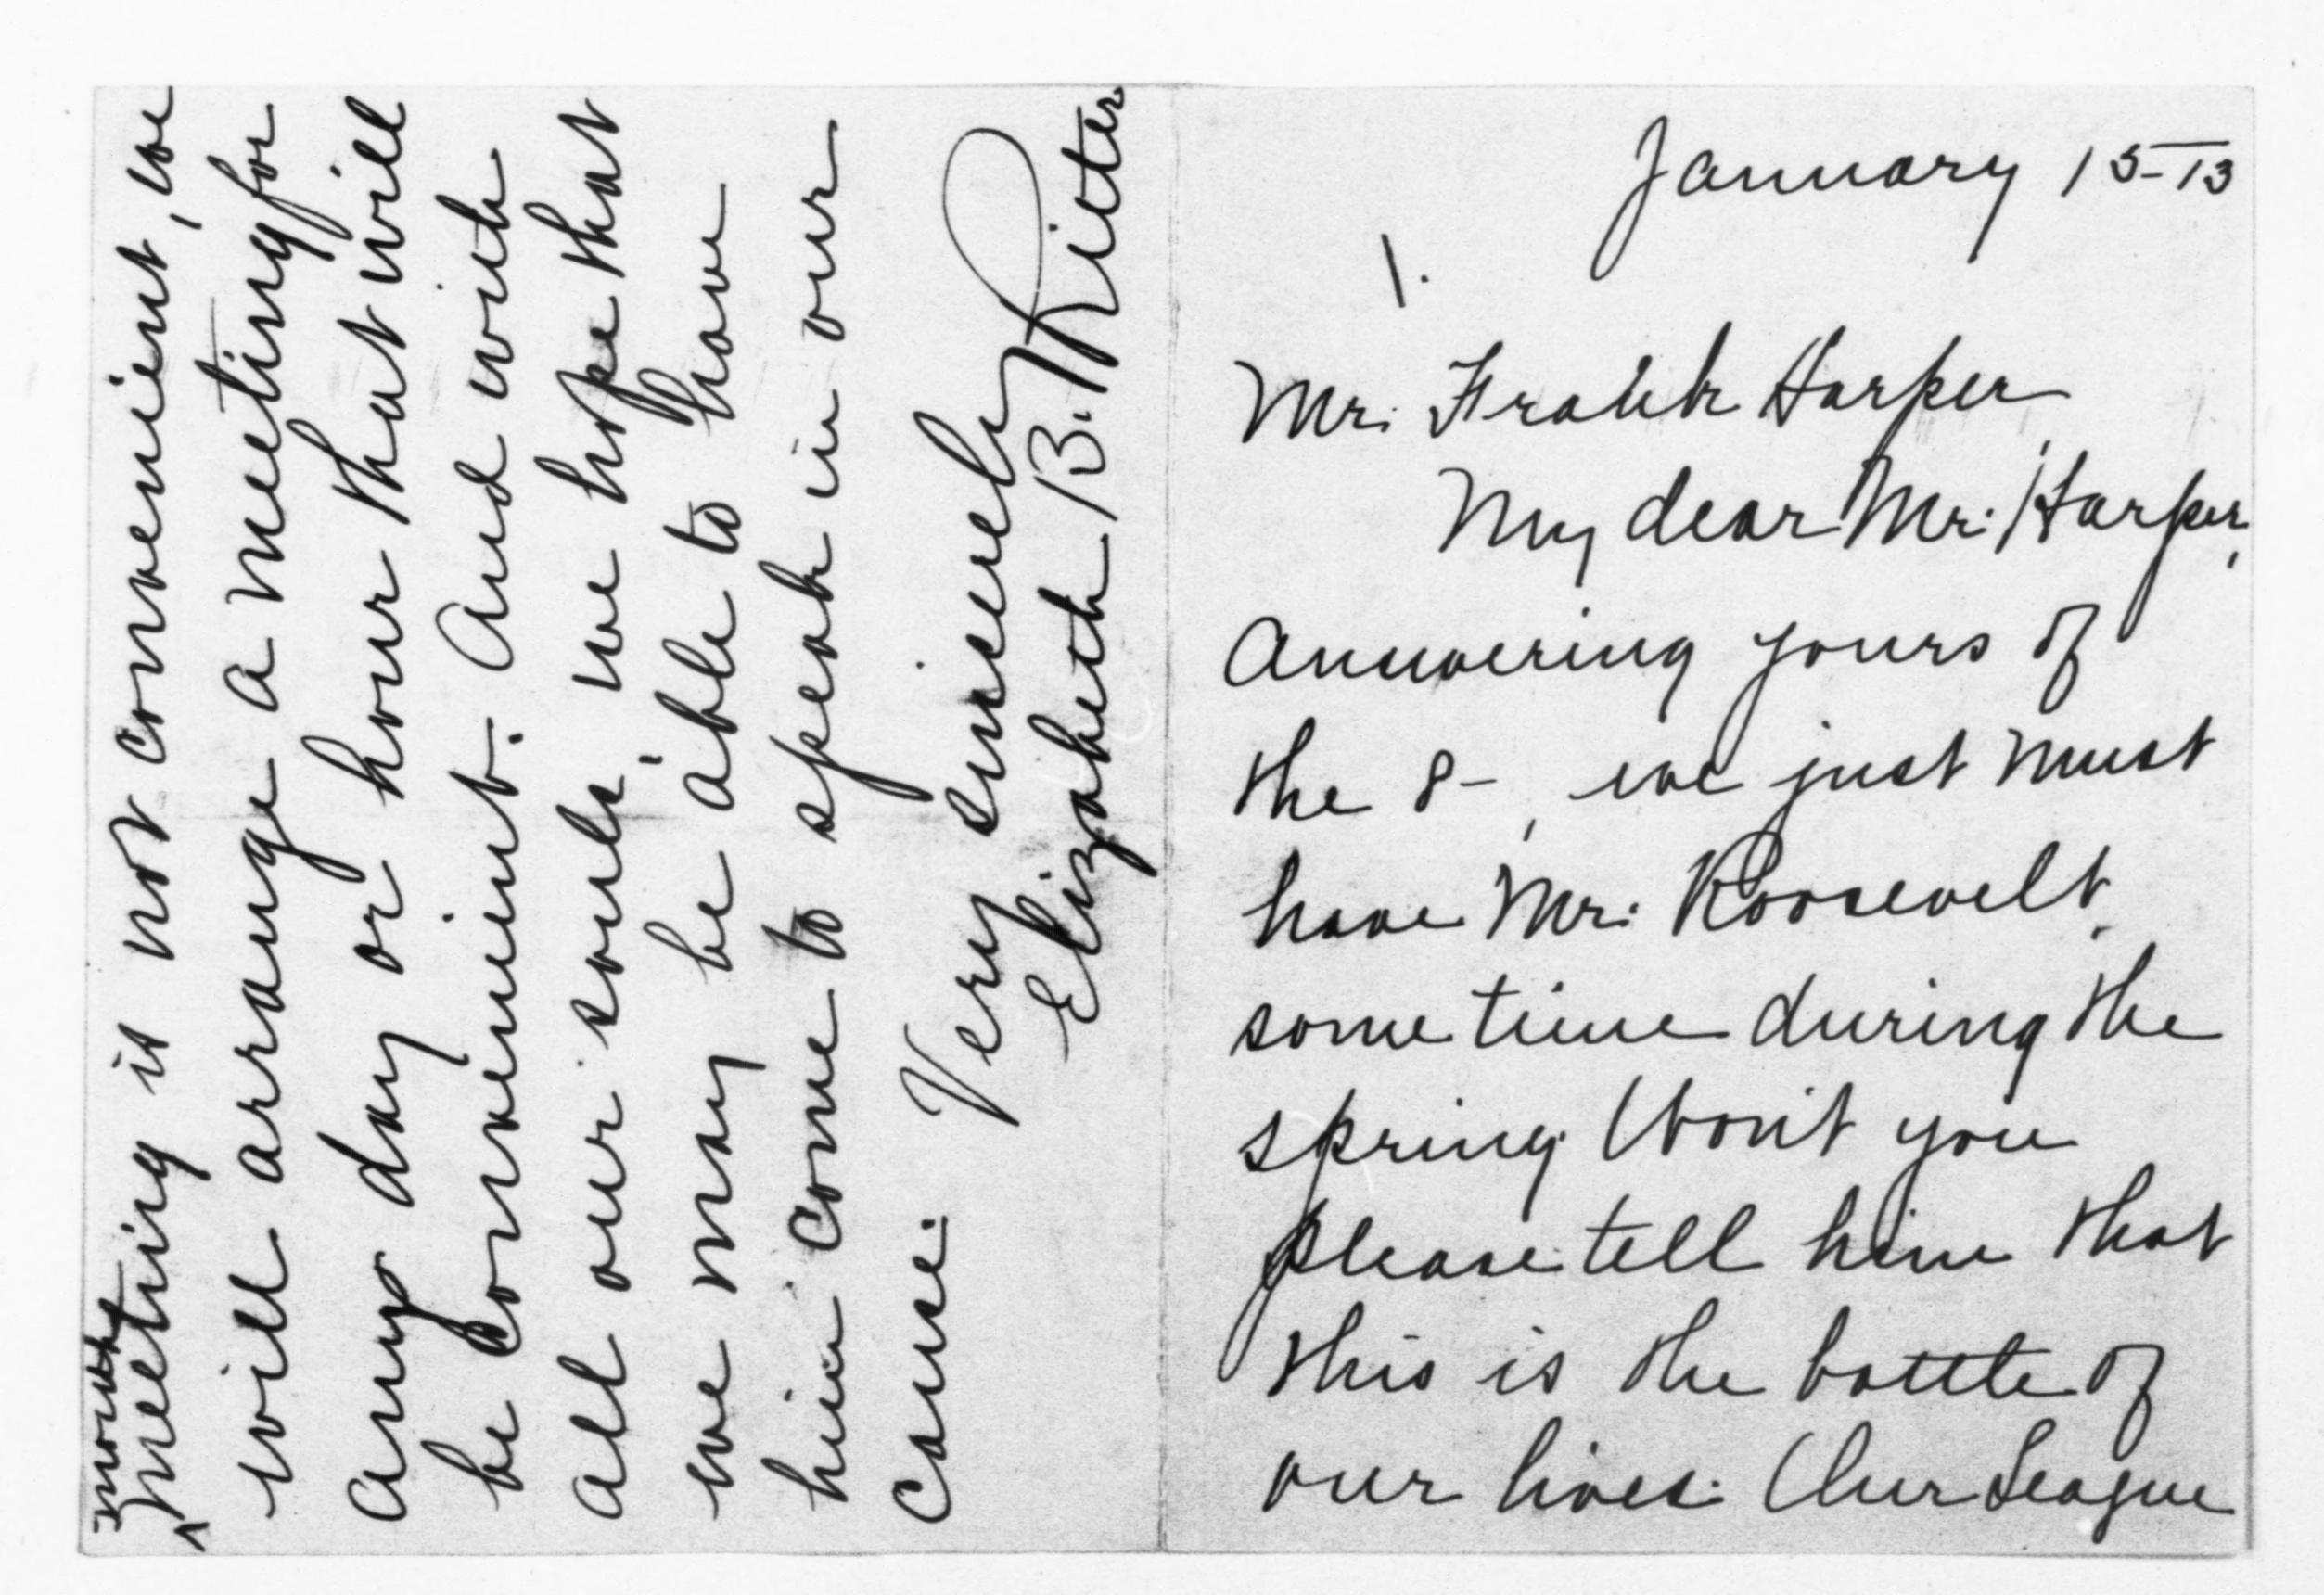 January 15-13
1.
Mr. Frank Harper
My dear Mr. Harper,
Answering yours of
the 8-, we just must
have Mr. Roosevelt
some time during the
spring. Won't you
please tell him that
this is the battle of
our lives. Our League
meeting is not convenient, we
will arrange a meeting for
any day or hour that will
be convenient. And with
all our souls, we hope that
we may be able to have
him come to speak in our
cause.
Very sincerely
Elizabeth B. Ritter